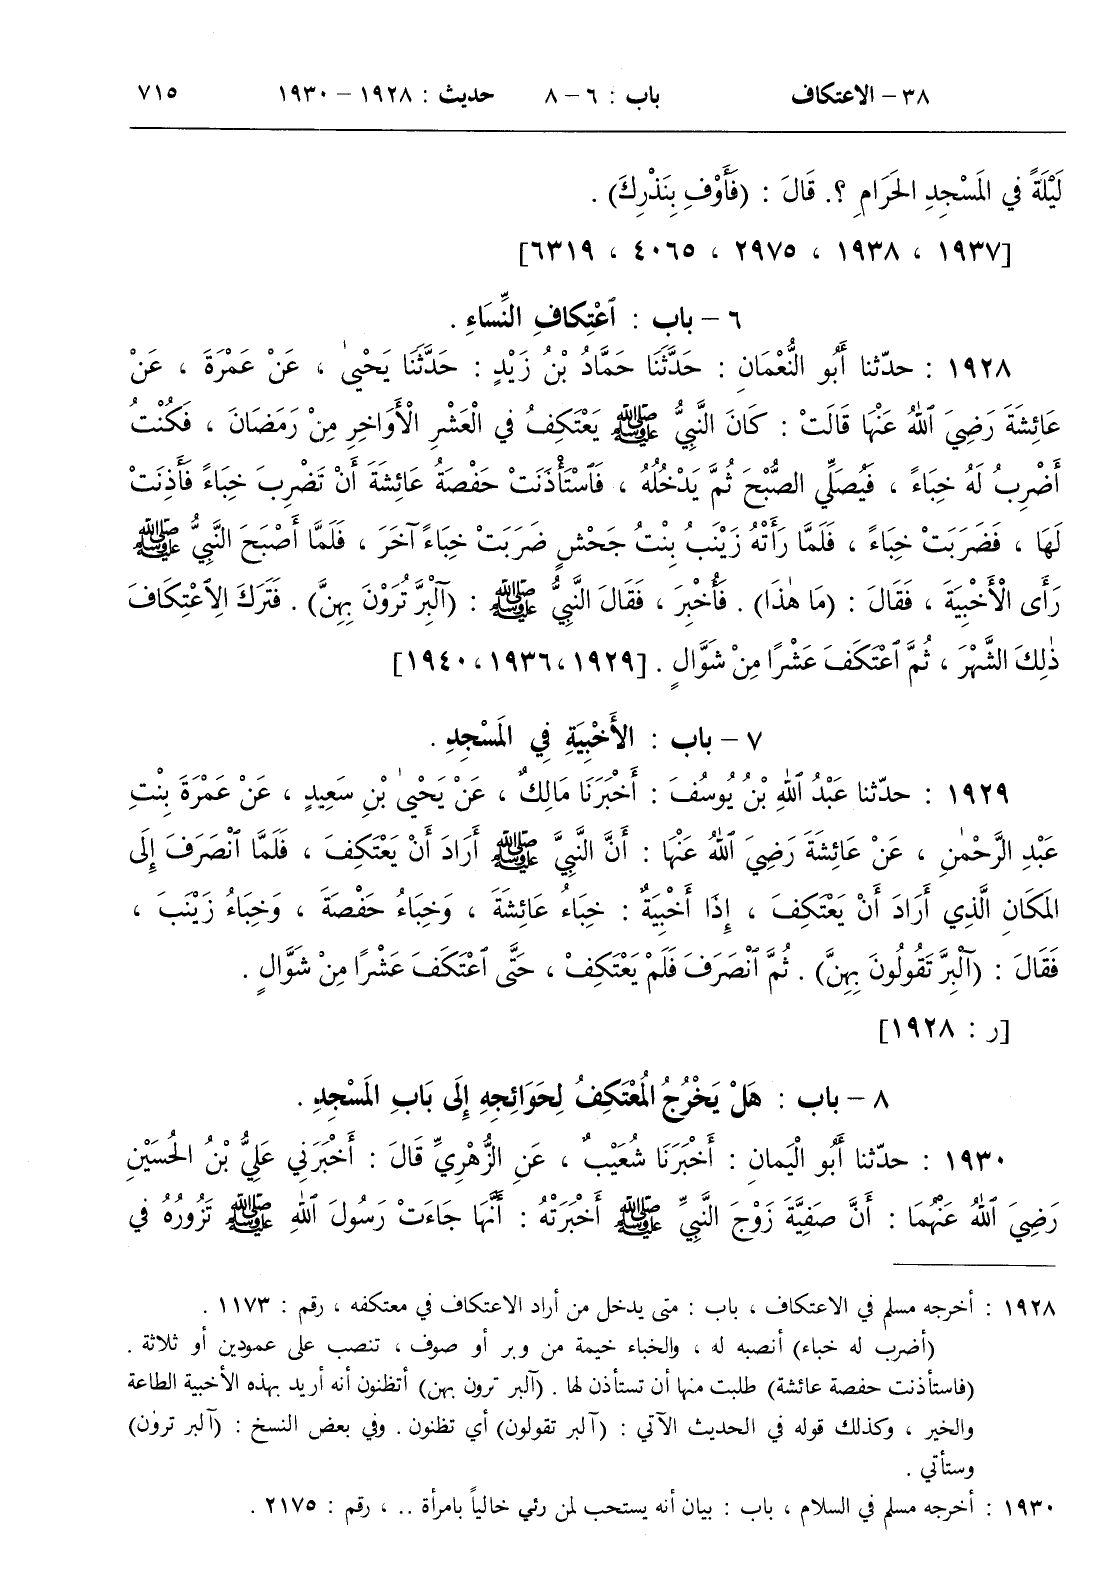 ٣٨ – الاعتكاف باب : ٦ – ٨ حديث : ١٩٢٨ – ١٩٣٠ ٧١٥
لَيْلَةً في المَسْجِدِ الحَرَامِ ؟. قَالَ : (فَأَوْفِ بِنَذْرِكَ) .
[١٩٣٧ ، ١٩٣٨ ، ٢٩٧٥ ، ٤٠٦٥ ، ٦٣١٩]
٦ – باب : ٱعْتِكافِ النِّسَاءِ .
١٩٢٨ : حدّثنا أَبُو النُّعْمَانِ : حَدَّثَنَا حَمَّادُ بْنُ زَيْدٍ : حَدَّثَنَا يَحْيىٰ ، عَنْ عَمْرَةَ ، عَنْ
عَائِشَةَ رَضِيَ ٱللهُ عَنْهَا قَالَتْ : كَانَ النَّبِيُّ ﷺ يَعْتَكِفُ في الْعَشْرِ الْأَوَاخِرِ مِنْ رَمَضَانَ ، فَكُنْتُ
أَضْرِبُ لَهُ خِبَاءً ، فَيُصَلِّي الصُّبْحَ ثُمَّ يَدْخُلُهُ ، فَٱسْتَأْذَنَتْ حَفْصَةُ عَائِشَةَ أَنْ تَضْرِبَ خِبَاءً فَأَذِنَتْ
لَهَا ، فَضَرَبَتْ خِبَاءً ، فَلَمَّا رَأَتْهُ زَيْنَبُ بِنْتُ جَحْشٍ ضَرَبَتْ خِبَاءً آخَرَ ، فَلَمَّا أَصْبَحَ النَّبِيُّ ﷺ
رَأَى الْأَخْبِيَةَ ، فَقَالَ : (مَا هٰذَا) . فَأُخْبِرَ ، فَقَالَ النَّبِيُّ ﷺ : (آلْبِرَّ تُرَوْنَ بِهِنَّ) . فَتَرَكَ الِٱعْتِكَافَ
ذٰلِكَ الشَّهْرَ ، ثُمَّ ٱعْتَكَفَ عَشْرًا مِنْ شَوَّالٍ . [١٩٢٩ ، ١٩٣٦ ، ١٩٤٠]
٧ – باب : الأَخْبِيَةِ في المَسْجِدِ .
١٩٢٩ : حدّثنا عَبْدُ ٱللهِ بْنُ يُوسُفَ : أَخْبَرَنَا مَالِكٌ ، عَنْ يَحْيىٰ بْنِ سَعِيدٍ ، عَنْ عَمْرَةَ بِنْتِ
عَبْدِ الرَّحْمٰنِ ، عَنْ عَائِشَةَ رَضِيَ ٱللهُ عَنْهَا : أَنَّ النَّبِيَّ ﷺ أَرَادَ أَنْ يَعْتَكِفَ ، فَلَمَّا ٱنْصَرَفَ إِلَى
المَكَانِ الَّذِي أَرَادَ أَنْ يَعْتَكِفَ ، إِذَا أَخْبِيَةٌ : خِبَاءُ عَائِشَةَ ، وَخِبَاءُ حَفْصَةَ ، وَخِبَاءُ زَيْنَبَ ،
فَقَالَ : (آلْبِرَّ تَقُولُونَ بِهِنَّ) . ثُمَّ ٱنْصَرَفَ فَلَمْ يَعْتَكِفْ ، حَتَّى ٱعْتَكَفَ عَشْرًا مِنْ شَوَّالٍ .
[ر : ١٩٢٨]
٨ – باب : هَلْ يَخْرُجُ الْمُعْتَكِفُ لِحَوَائِجِهِ إِلَى بَابِ المَسْجِدِ .
١٩٣٠ : حدّثنا أَبُو الْيَمانِ : أَخْبَرَنَا شُعَيْبٌ ، عَنِ الزُّهْرِيِّ قَالَ : أَخْبَرَنِي عَلِيُّ بْنُ الحُسَيْنِ
رَضِيَ ٱللهُ عَنْهُمَا : أَنَّ صَفِيَّةَ زَوْجَ النَّبِيِّ ﷺ أَخْبَرَتْهُ : أَنَّهَا جَاءَتْ رَسُولَ ٱللهِ ﷺ تَزُورُهُ في
١٩٢٨ : أخرجه مسلم في الاعتكاف ، باب : متى يدخل من أراد الاعتكاف في معتكفه ، رقم : ١١٧٣ .
(أضرب له خباء) أنصبه له ، والخباء خيمة من وبر أو صوف ، تنصب على عمودين أو ثلاثة .
(فاستأذنت حفصة عائشة) طلبت منها أن تستأذن لها . (آلبر ترون بهن) أتظنون أنه أريد بهذه الأخبية الطاعة
والخير ، وكذلك قوله في الحديث الآتي : (آلبر تقولون) أي تظنون . وفي بعض النسخ : (آلبر ترون)
وستأتي .
١٩٣٠ : أخرجه مسلم في السلام ، باب : بيان أنه يستحب لمن رئي خالياً بامرأة .. ، رقم : ٢١٧٥ .